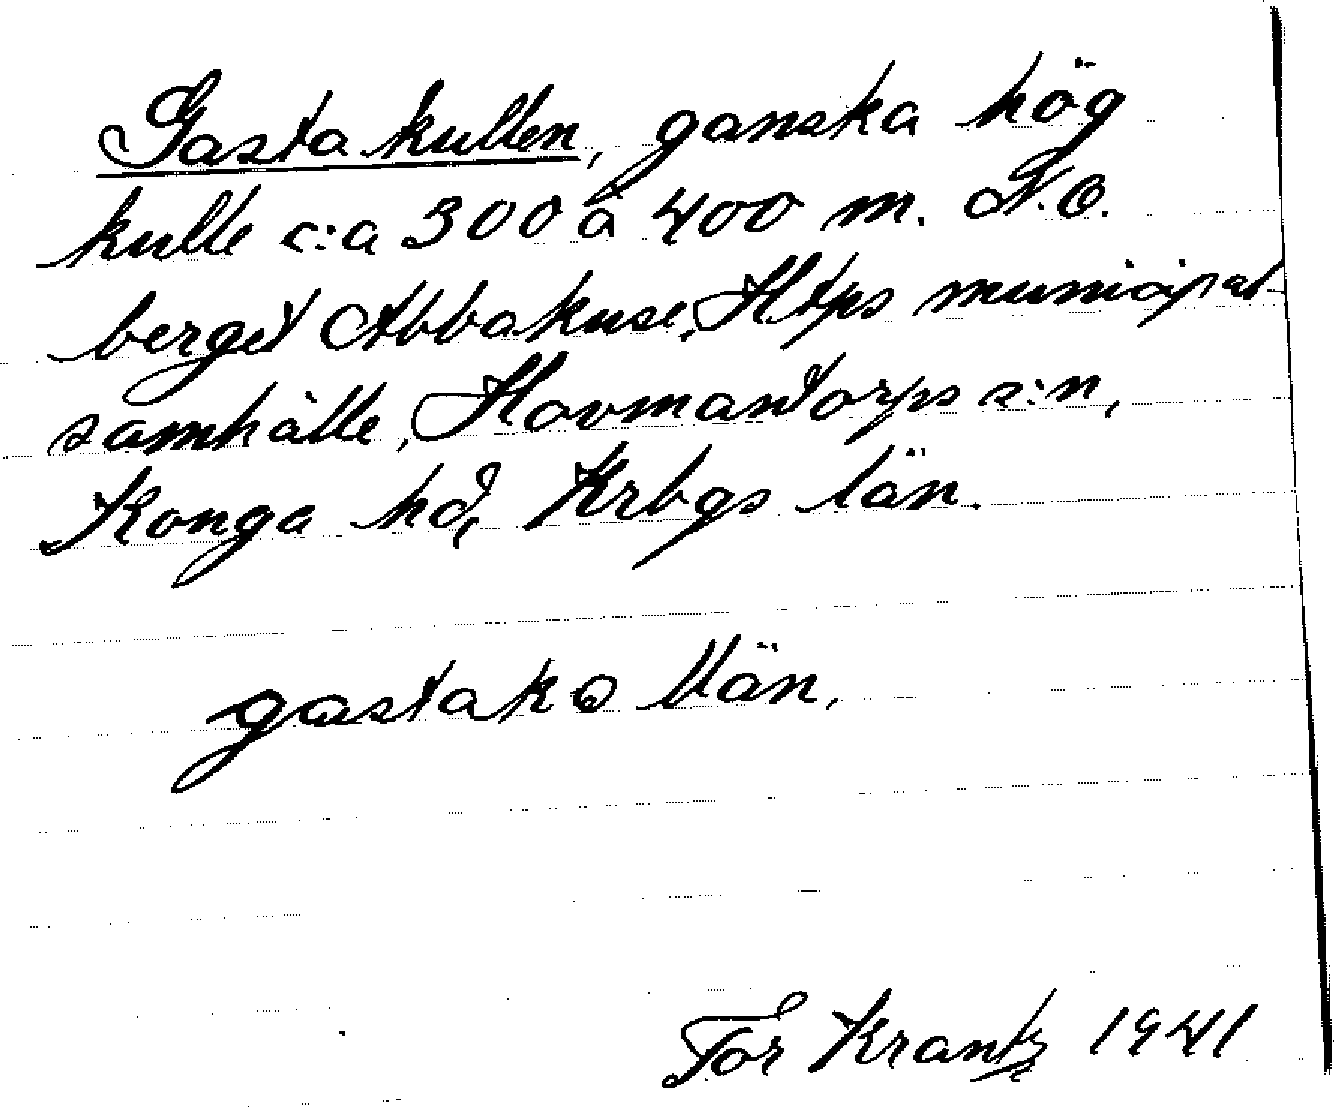 Gastakullen, ganska hög
kulle c:a 300 à 400 m. N.O.
berget Abbakuse, Htps municipal
samhälle, Hovmantorps s:n,
Konga hd, Krbgs län.
gastako
Tor Krantz 1941